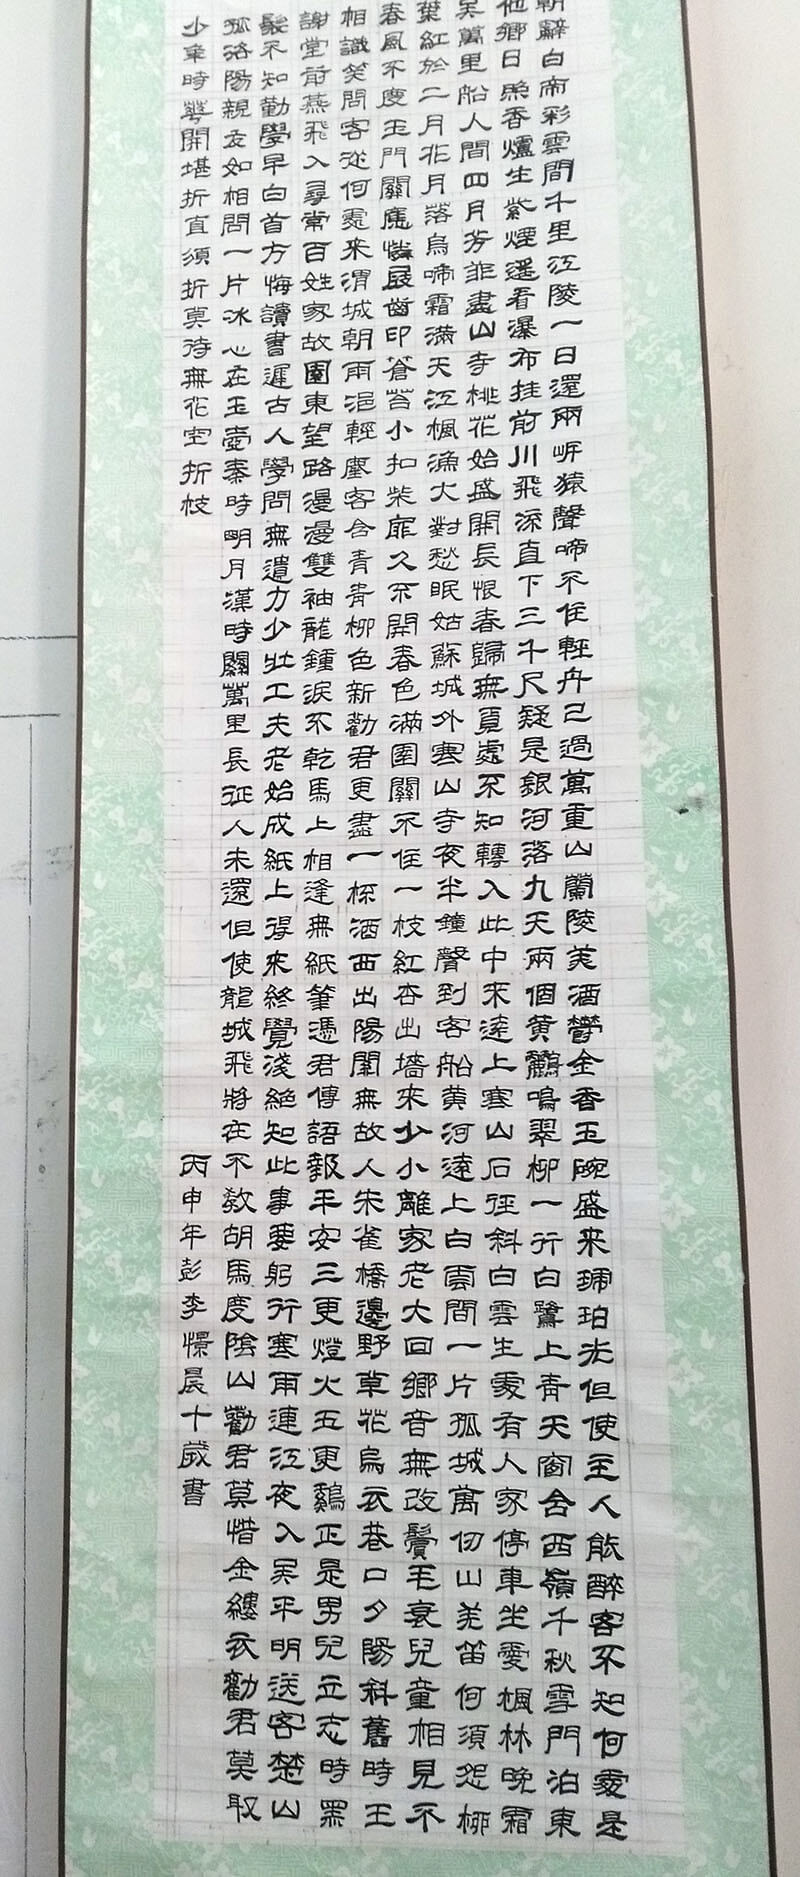 朝辭白帝彩雲間千里江陵一日還兩岸猿聲啼不住輕舟已過萬重山蘭陵美酒鬱金香玉碗盛来琥珀光但使主人能醉客不知何處是
他鄉日照香爐生紫煙遥看瀑布挂前川飛流直下三千尺疑是銀河落九天兩個黄鸝鳴翠柳一行白鷺上青天窗含西嶺千秋雪門泊東
吴萬里船人間四月芳菲盡山寺桃花始盛開長恨春歸無覓處不知轉入此中来遠上寒山石徑斜白雲生處有人家停車坐愛楓林晚霜
葉紅於二月花月落烏啼霜滿天江楓漁火對愁眠姑蘇城外寒山寺夜半鐘聲到客船黄河遠上白雲間一片孤城萬仞山羌笛何須怨柳
春風不度玉門關應憐屐齒印蒼苔小扣柴扉久不開春色滿園關不住一枝紅杏出墻來少小離家老大回鄉音無改鬢毛衰兒童相見不
相識笑問客從何處来渭城朝雨浥輕塵客舍青青柳色新勸君更盡一杯酒西出陽關無故人朱雀橋邊野草花烏衣巷口夕陽斜舊時王
謝堂前燕飛入尋常百姓家故園東望路漫漫雙袖龍鍾淚不乾馬上相逢無紙筆憑君傳語報平安三更燈火五更鷄正是男兒立志時黑
髮不知勤學早白首方悔讀書遲古人學問無遺力少壯工夫老始成紙上得来終覺淺絕知此事要躬行寒雨連江夜入吴平明送客楚山
孤洛陽親友如相問一片冰心在玉壺秦時明月漢時關萬里長征人未還但使龍城飛將在不教胡馬度陰山勸君莫惜金縷衣勸君莫取
少年時花開堪折直須折莫待無花空折枝
丙申年彭李憬晨十歲書